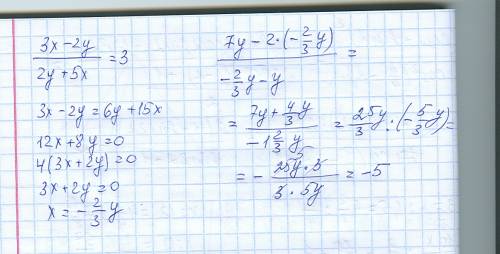 (3x-2y)/(2y+5x) = 3
3x-2y=6y+15x
12x+8y=0
4(3x+2y)=0
3x+2y=0
x=-2/3 y
(7y-2·(-2/3 y))/(-2/3 y-y) =
= (7y+4/3 y)/(-1 2/3 y) = 25y/3 : (-5/3 y) =
= - (25y·3)/(3·5y) = -5